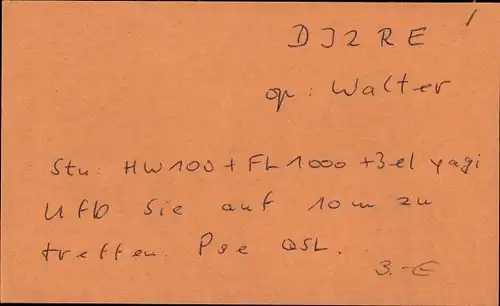 DJ2RE
op: Walter
Stn: HW100 + FL1000 + 3el yagi
Ufb Sie auf 10m zu
treffen. Pse QSL.
3.-€